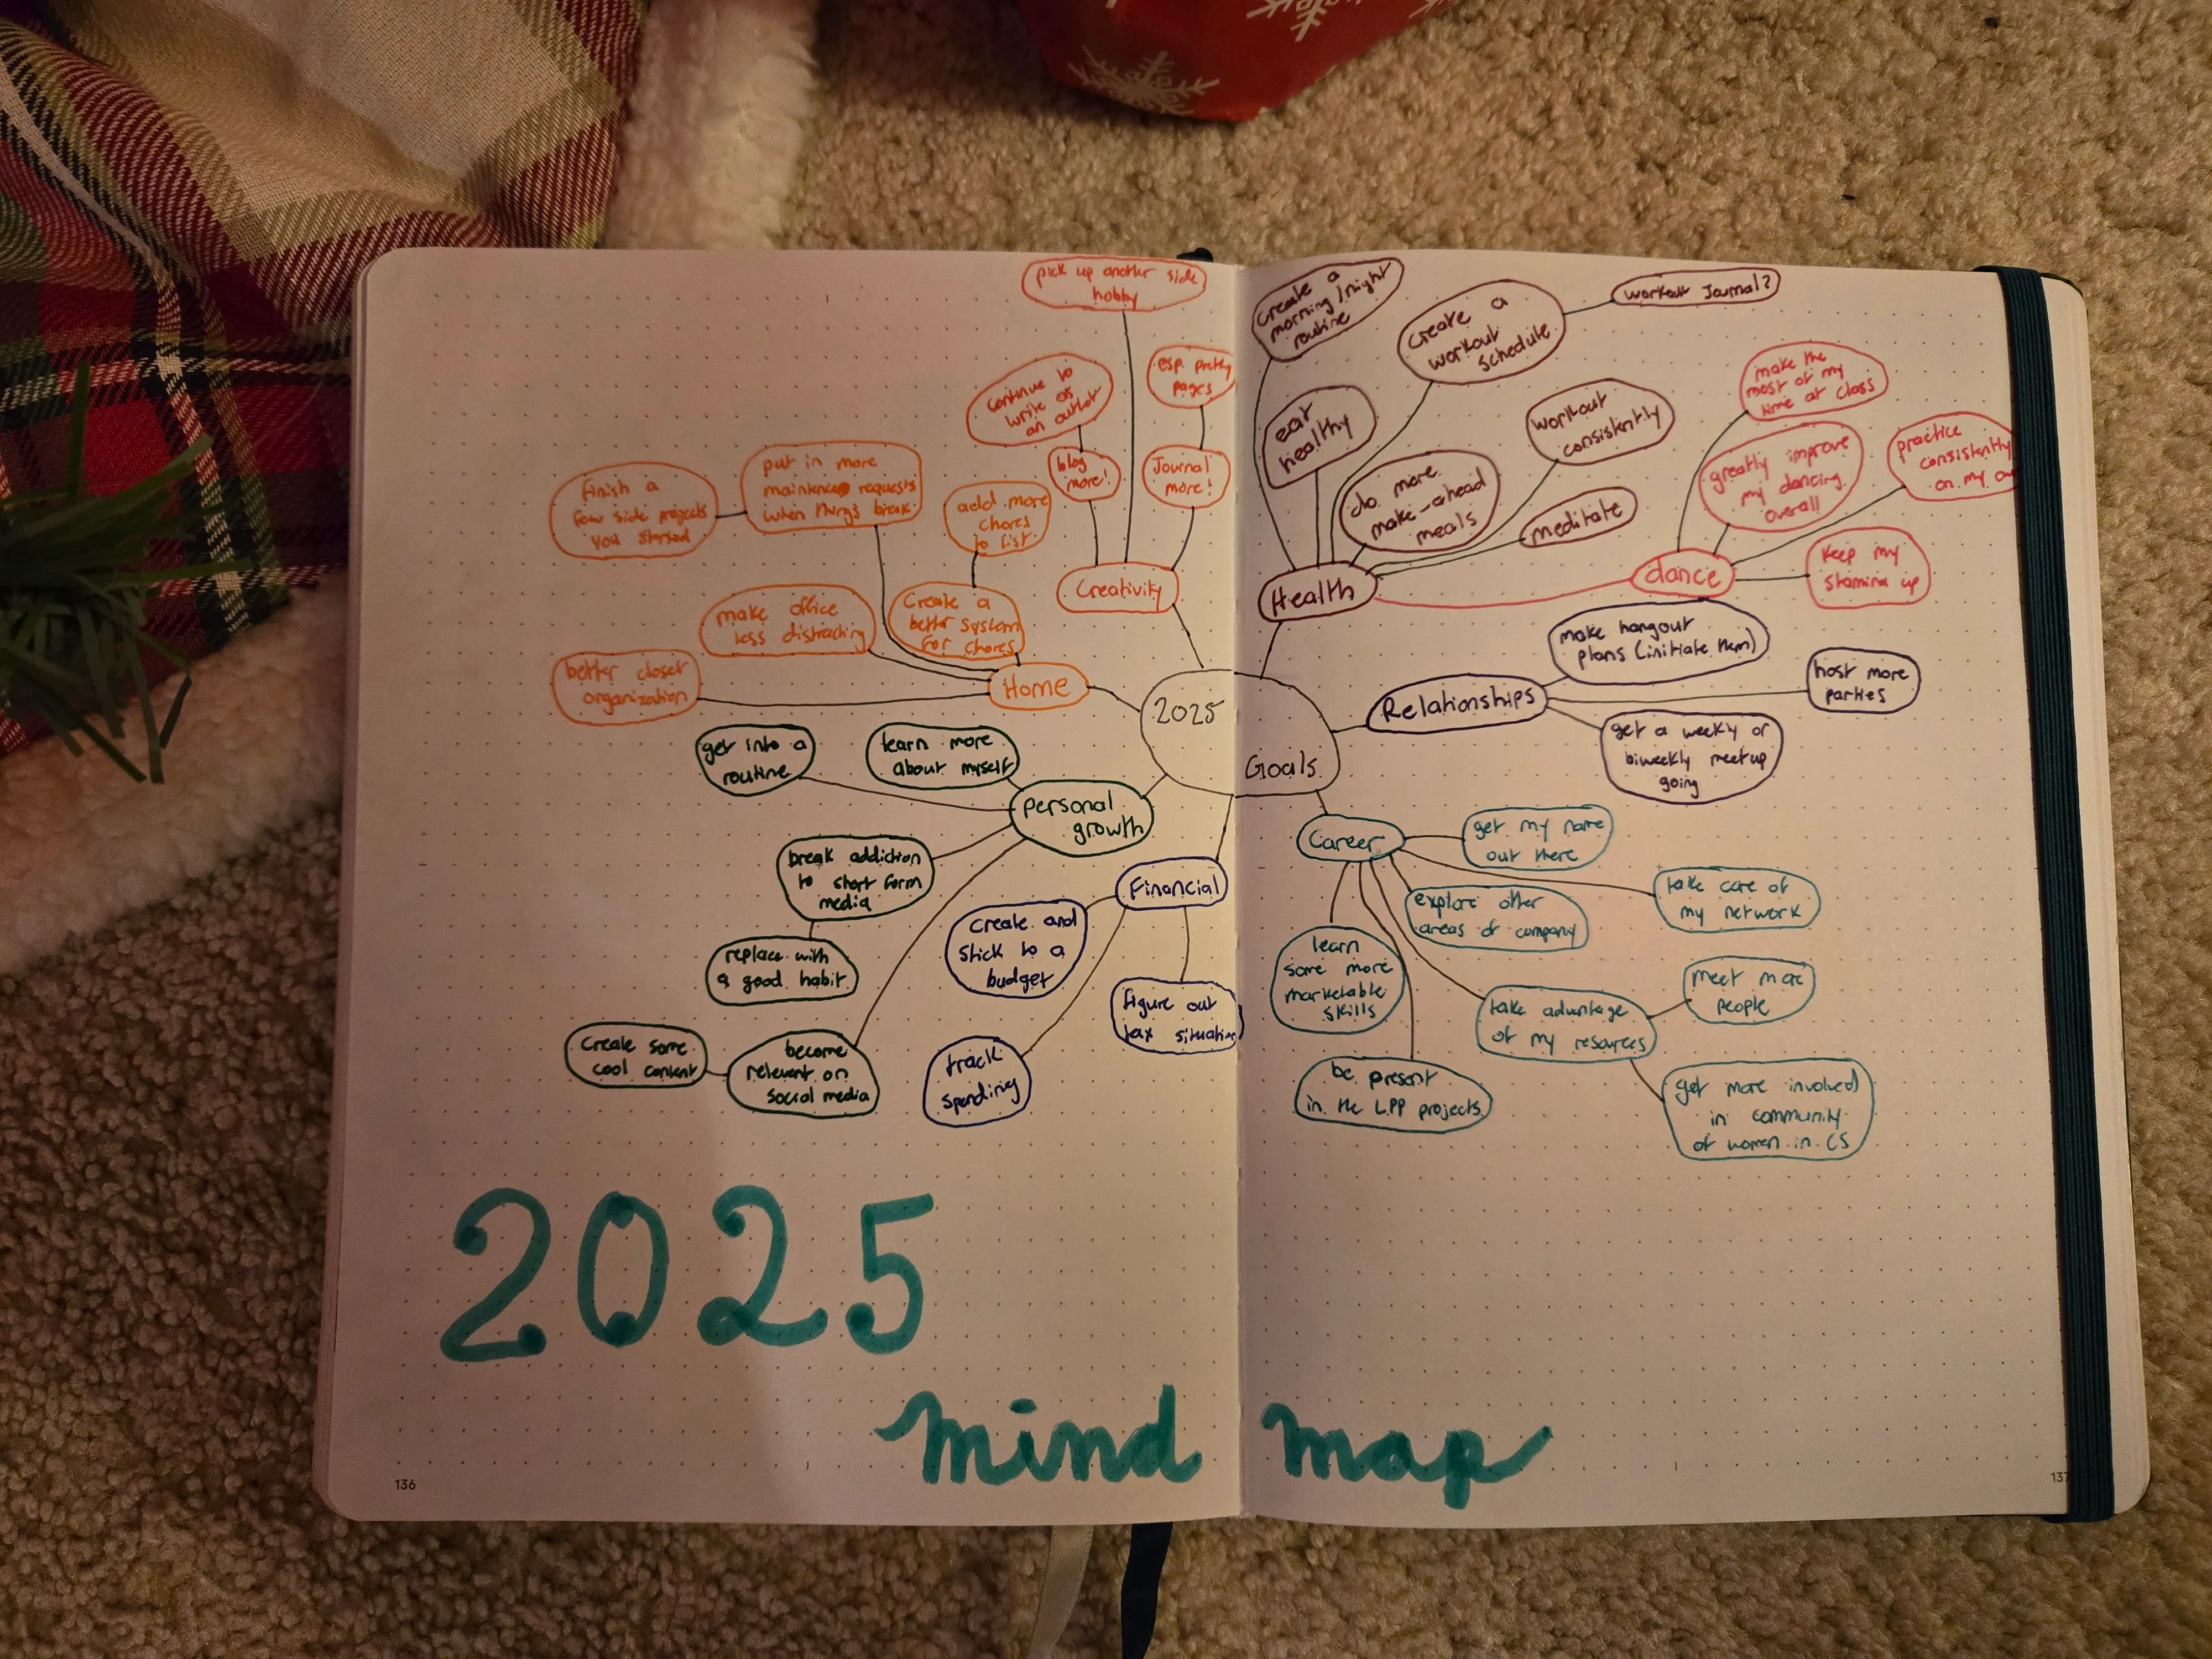 pick up another side
hobby
continue to
write as
an outlet
esp. pretty
pages
blog
more!
Journal
more!
Creativity
finish a
few side projects
you started
put in more
maintence requests
when things break
add more
chores
to list
make office
less distracting
Create a
better system
for chores
better closet
organization
Home
2025
Goals
get into a
routine
learn more
about myself
personal
growth
break addiction
to short form
media
replace with
a good habit
Create some
cool content
become
relevant on
social media
Financial
create and
stick to a
budget
track
spending
figure out
tax situation
create a
morning/night
routine
create a
workout
schedule
workout Journal?
eat
healthy
do more
make-ahead
meals
workout
consistently
meditate
Health
make the
most of my
time at class
greatly improve
my dancing
overall
practice
consistently
on my
dance
keep my
stamina up
make hangout
plans (initiate them)
Relationships
host more
parties
get a weekly or
biweekly meetup
going
Career
get my name
out there
explore other
areas of company
take care of
my network
learn
some more
marketable
skills
take advantage
of my resources
meet more
people
be present
in the LPP projects
get more involved
in community
of women in CS
2025
mind map
136
137